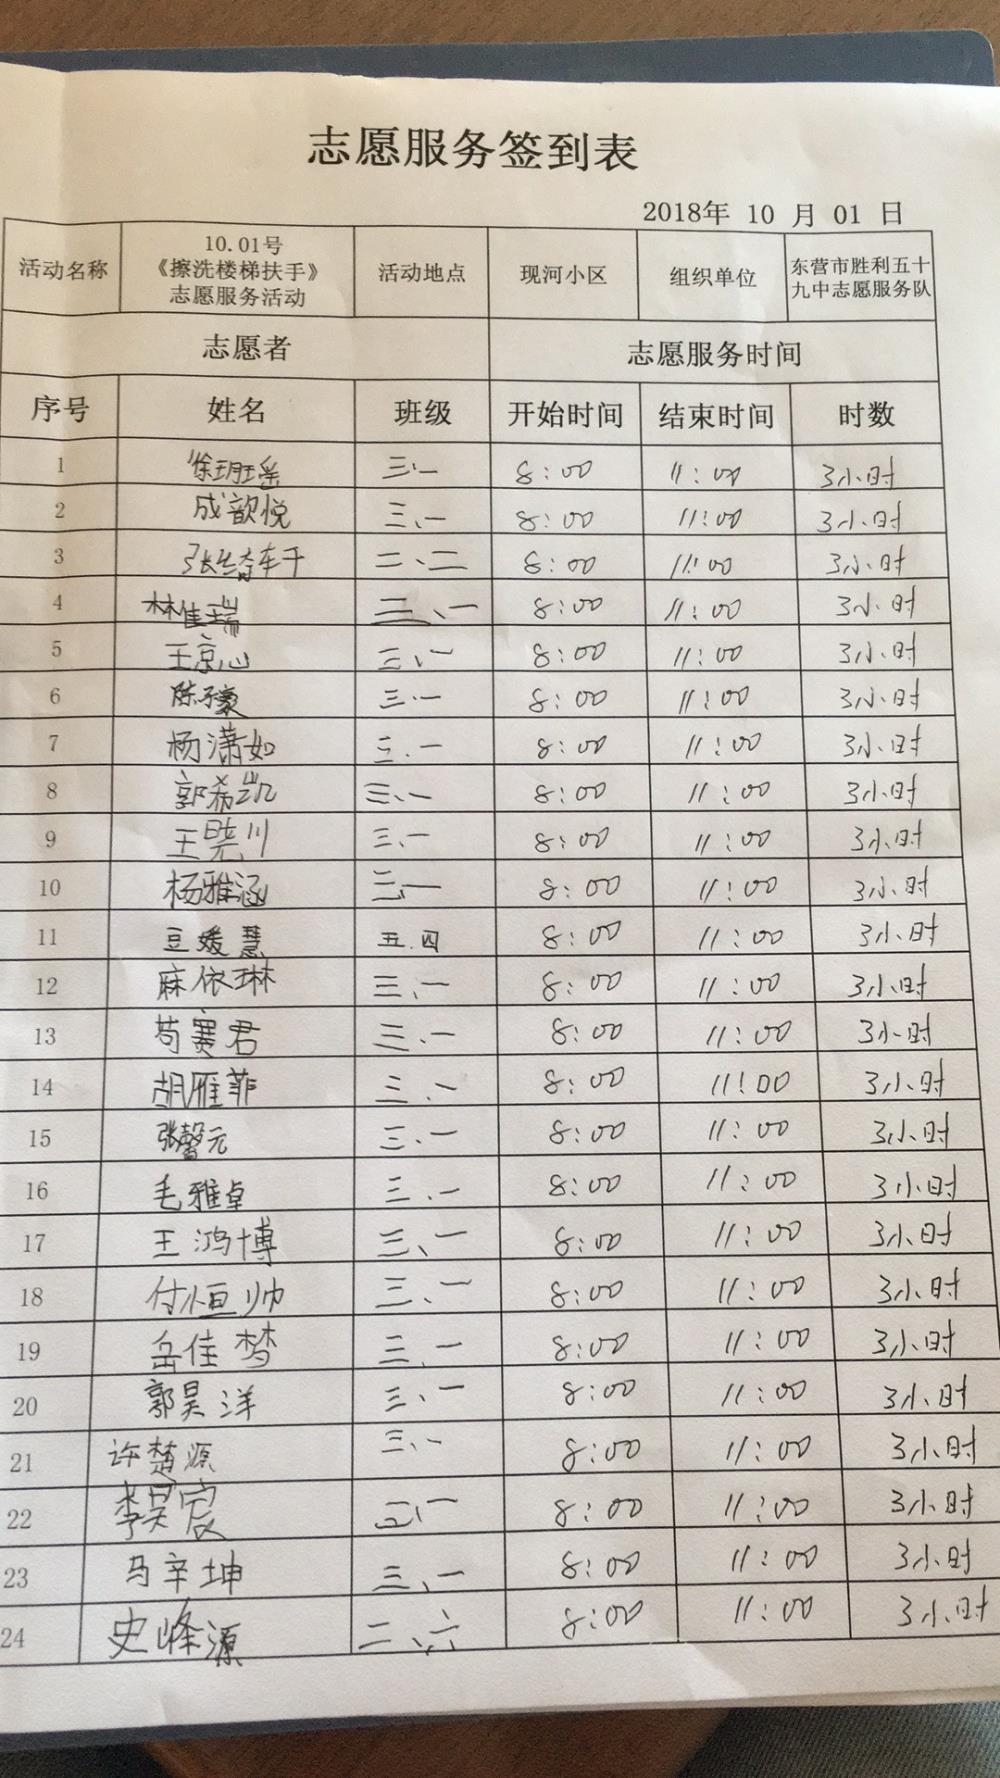 志愿服务签到表
2018年 10 月 01 日
活动名称 10.01号《擦洗楼梯扶手》志愿服务活动 活动地点 现河小区 组织单位 东营市胜利五十九中志愿服务队
志愿者 志愿服务时间
序号 姓名 班级 开始时间 结束时间 时数
1 徐玥瑶 三、一 8:00 11:00 3小时
2 成歆悦 三、一 8:00 11:00 3小时
3 张 二、二 8:00 11:00 3小时
4 林佳瑞 三、一 8:00 11:00 3小时
5 王京心 三、一 8:00 11:00 3小时
6 陈子豪 三、一 8:00 11:00 3小时
7 杨潇如 三、一 8:00 11:00 3小时
8 郭希凯 三、一 8:00 11:00 3小时
9 王晓川 三、一 8:00 11:00 3小时
10 杨雅涵 三、一 8:00 11:00 3小时
11 豆媛慧 五.四 8:00 11:00 3小时
12 麻依琳 三、一 8:00 11:00 3小时
13 苟赛君 三、一 8:00 11:00 3小时
14 胡雁菲 三、一 8:00 11:00 3小时
15 张馨元 三、一 8:00 11:00 3小时
16 毛雅卓 三、一 8:00 11:00 3小时
17 王鸿博 三、一 8:00 11:00 3小时
18 付恒帅 三、一 8:00 11:00 3小时
19 岳佳梦 三、一 8:00 11:00 3小时
20 郭昊洋 三、一 8:00 11:00 3小时
21 许楚源 三、一 8:00 11:00 3小时
22 李昊宸 三、一 8:00 11:00 3小时
23 马辛坤 三、一 8:00 11:00 3小时
24 史峰源 二、六 8:00 11:00 3小时